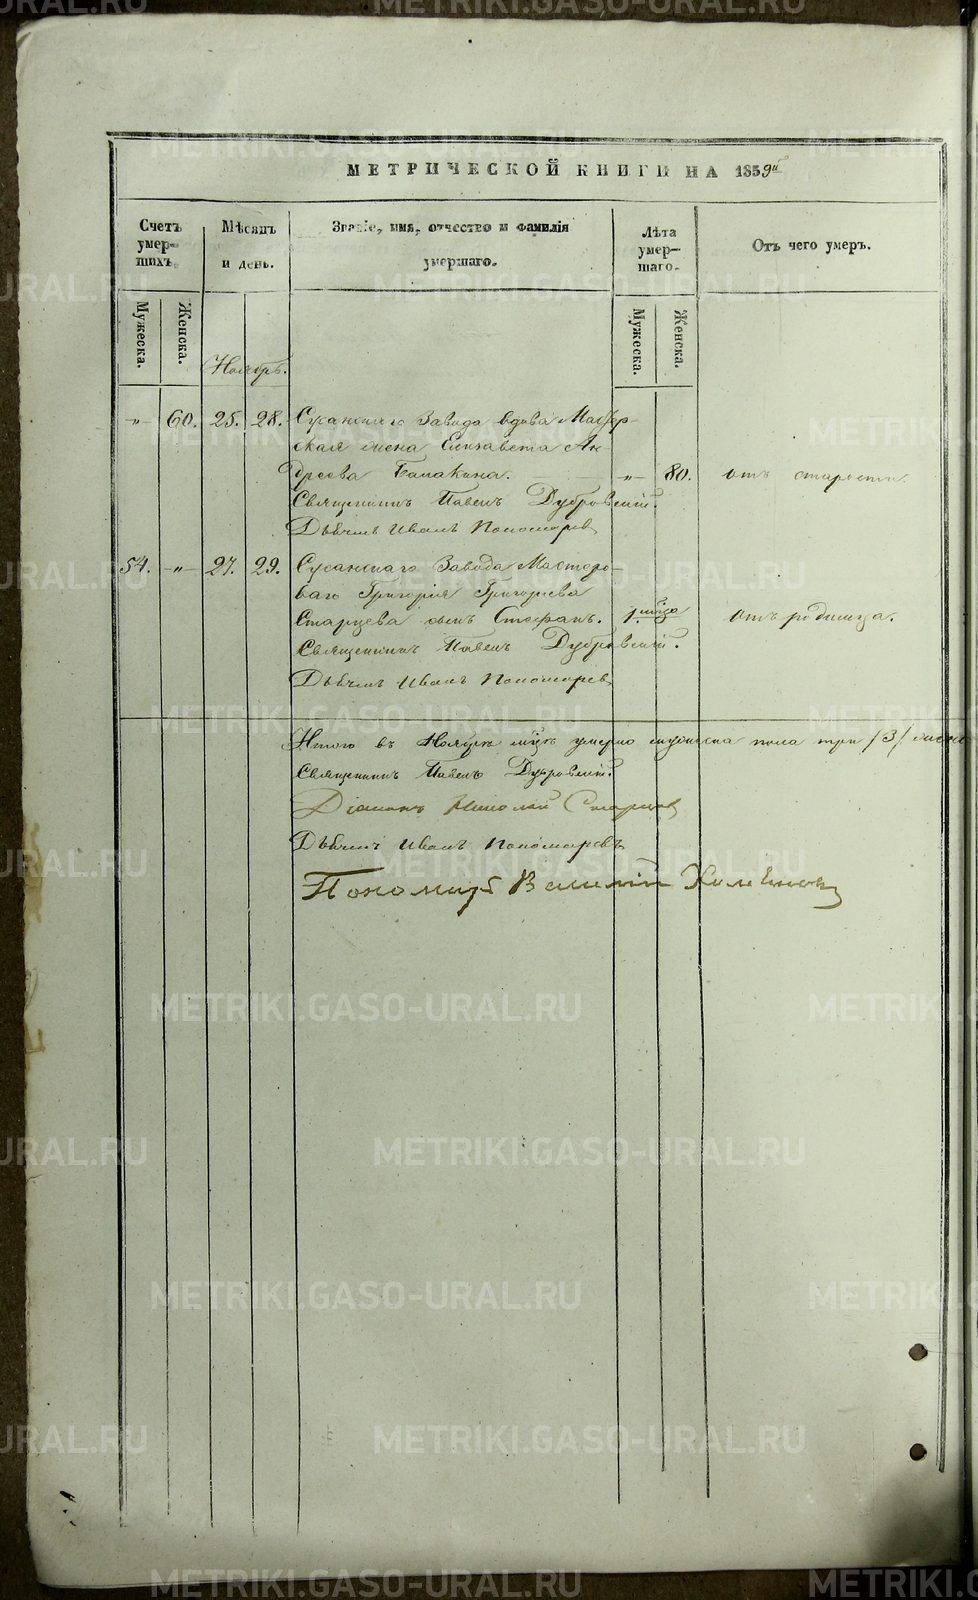 МЕТРИЧЕСКОЙ КНИГИ НА 1859й
Счетъ умер- шихъ.
Мѣсяцъ и день.
Званіе, имя, отчество и фамилія умершаго.
Лѣта умер- шаго.
Отъ чего умеръ.
Мужеска.
Женска.
Мужеска.
Женска.
Ноябрь.
„ 60. 25. 28. Сусанскаго Завода вдова Мастер-
ская жена Елизавета Ан-
дреева „ 80. отъ старости.
Священникъ Павелъ Дубровскій.
Дьячекъ Иванъ Пономаревъ
54. „ 27. 29. Сусанскаго Завода Мастеро-
ваго Григорія Григорьева
Старцева сынъ Стефанъ. 1. мѣца отъ родимца.
Священникъ Павелъ Дубровскій.
Дьячекъ Иванъ Пономаревъ
Итого въ Ноябрѣ мцѣ умерло мужеска пола три /3/
Священникъ Павелъ Дубровскій.
Діаконъ Николай Старцев
Дьячекъ Иванъ Пономаревъ
Пономарь Василій
METRIKI.GASO-URAL.RU